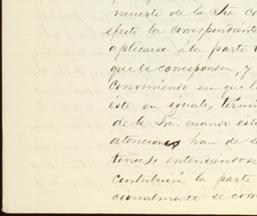 muerte de la Sra Co
efecto la correspondiente
aplicarse á la parte
que le corresponda, y
Conviniendo en que l
éste en iguales térmi
de la Sra cuando est
atenciones han de s
tonces, entendiendose
contribuirá la parte
cionalmente se com